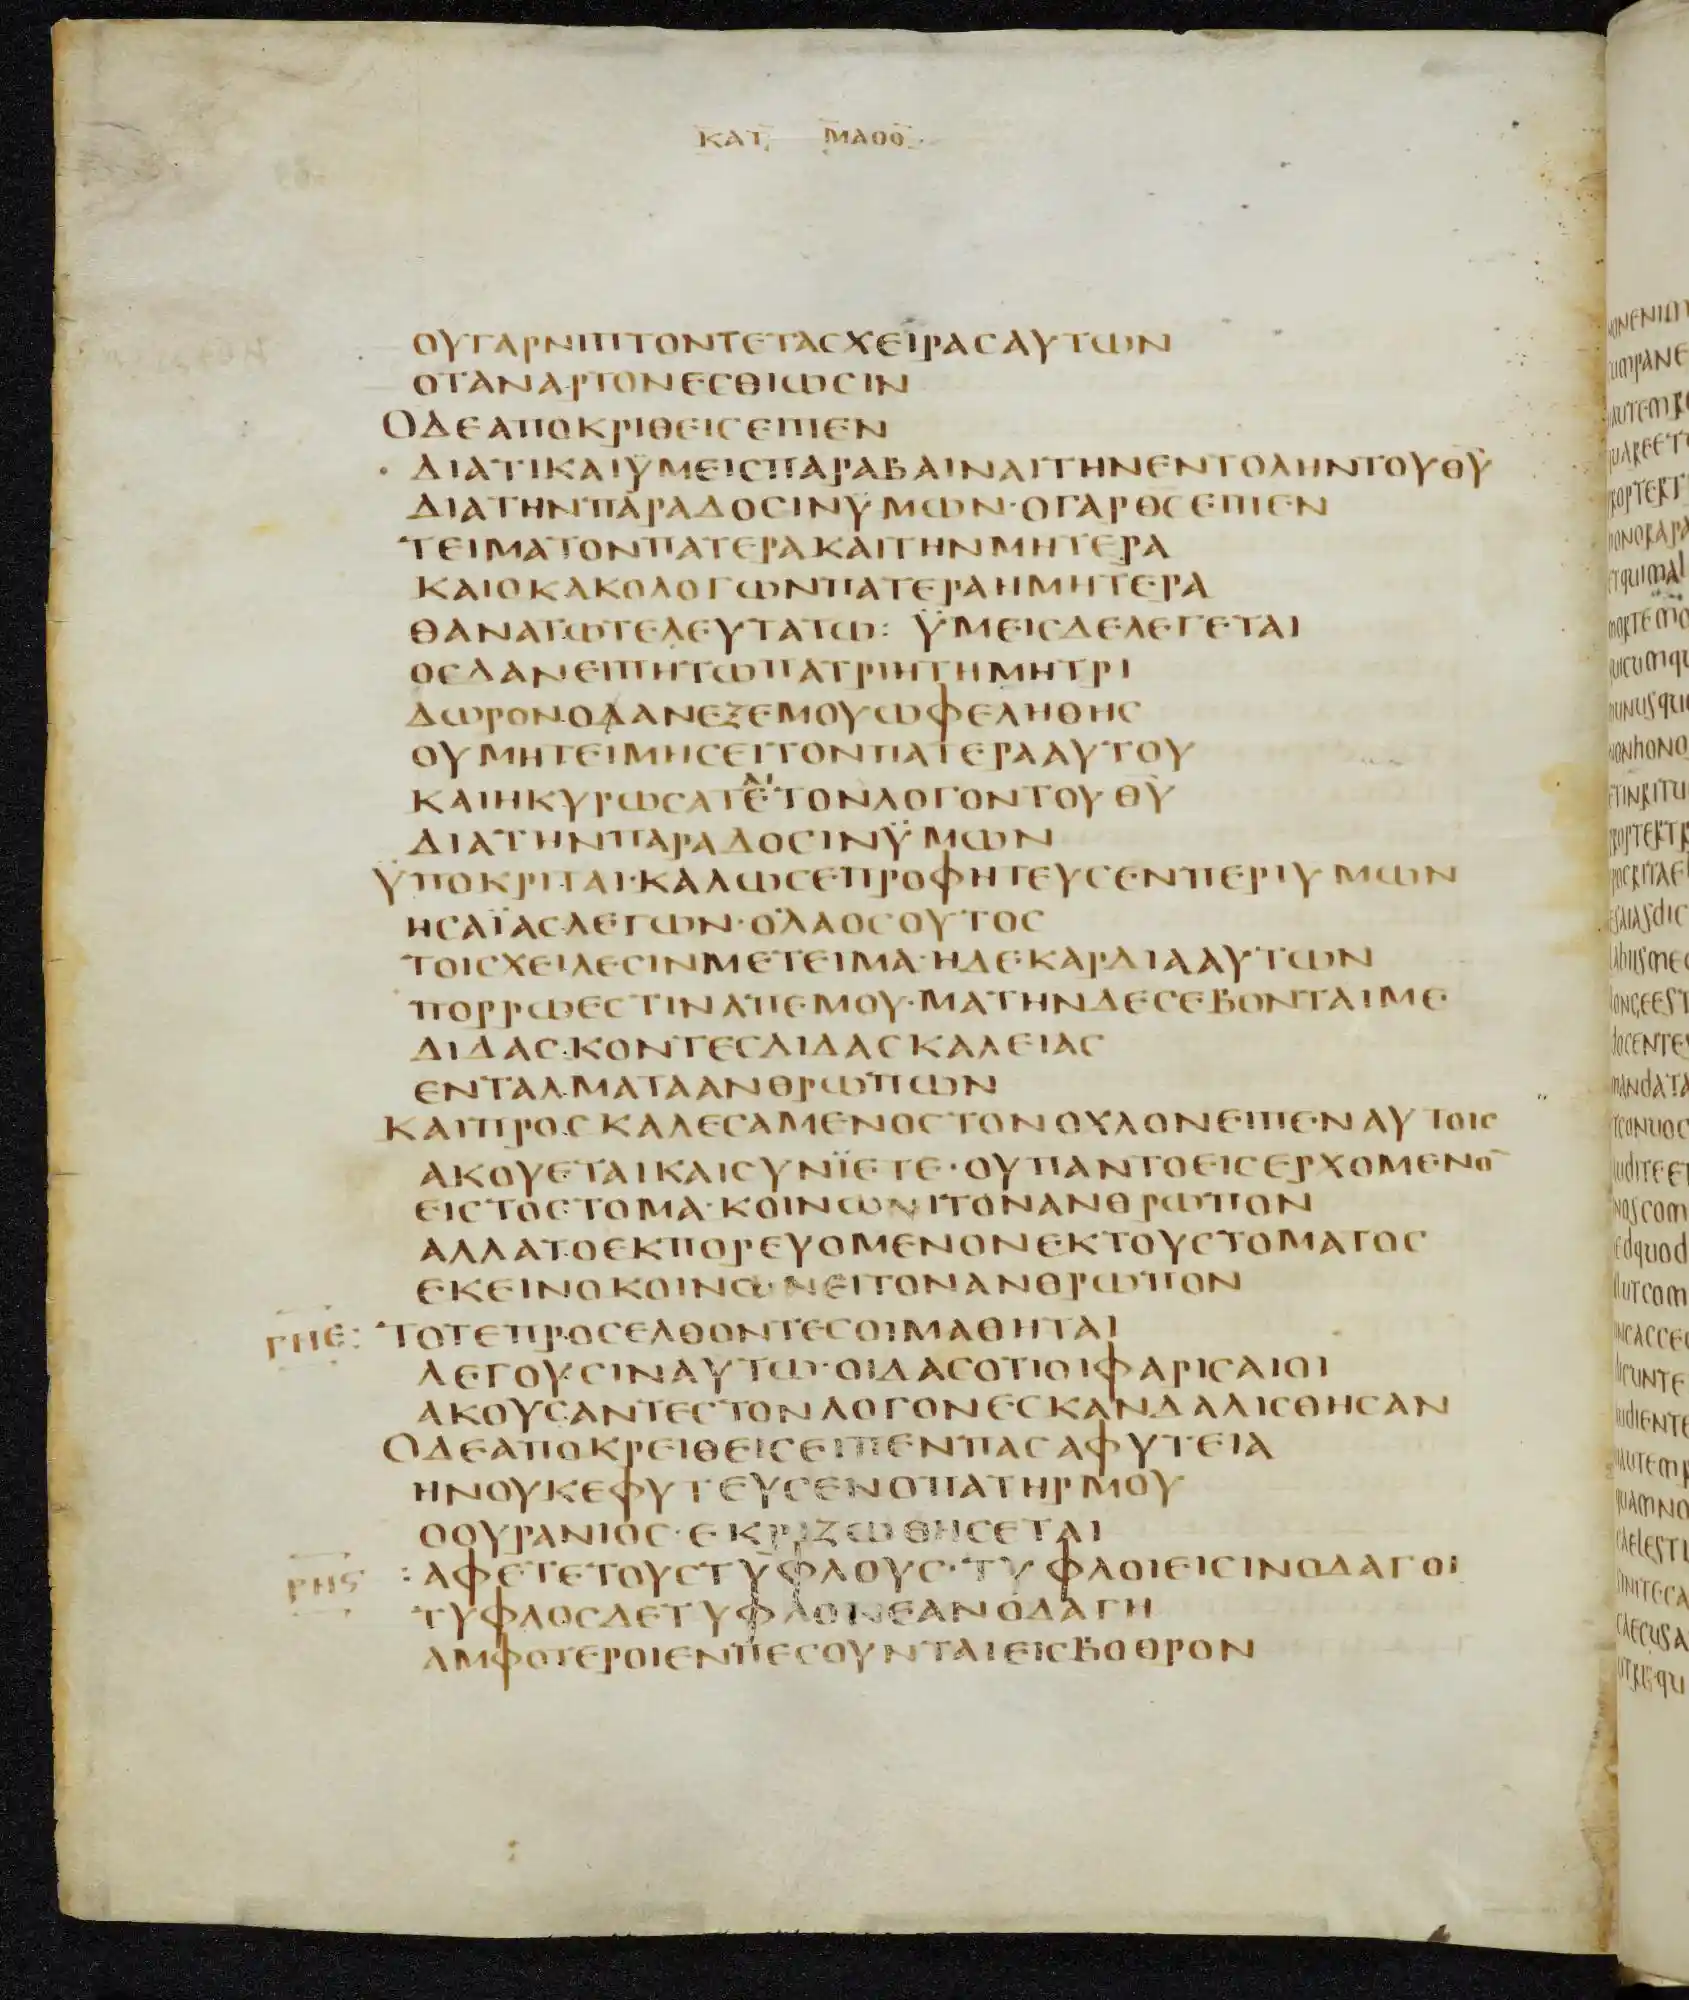 ΚΑΤ ΜΑΘΘ
ΟΥΓΑΡΝΙΠΤΟΝΤΕΤΑΣΧΕΙΡΑΣΑΥΤΩΝ
ΟΤΑΝΑΡΤΟΝΕΣΘΙΩΣΙΝ
ΟΔΕΑΠΟΚΡΙΘΕΙΣΕΙΠΕΝ
· ΔΙΑΤΙΚΑΙΫΜΕΙΣΠΑΡΑΒΑΙΝΑΙΤΗΝΕΝΤΟΛΗΝΤΟΥΘΥ
ΔΙΑΤΗΝΠΑΡΑΔΟΣΙΝΫΜΩΝ·ΟΓΑΡΘΣΕΙΠΕΝ
ΤΕΙΜΑΤΟΝΠΑΤΕΡΑΚΑΙΤΗΝΜΗΤΕΡΑ
ΚΑΙΟΚΑΚΟΛΟΓΩΝΠΑΤΕΡΑΗΜΗΤΕΡΑ
ΘΑΝΑΤΩΤΕΛΕΥΤΑΤΩ: ΫΜΕΙΣΔΕΛΕΓΕΤΑΙ
ΟΣΑΑΝΕΙΠΗΤΩΠΑΤΡΙΗΤΗΜΗΤΡΙ
ΔΩΡΟΝΟΑΑΝΕΞΕΜΟΥΩΦΕΛΗΘΗΣ
ΟΥΜΗΤΕΙΜΗΣΕΙΤΟΝΠΑΤΕΡΑΑΥΤΟΥ
ΚΑΙΗΚΥΡΩΣΑΤΕΤΟΝΛΟΓΟΝΤΟΥΘΥ
ΔΙΑΤΗΝΠΑΡΑΔΟΣΙΝΫΜΩΝ
ΫΠΟΚΡΙΤΑΙ·ΚΑΛΩΣΕΠΡΟΦΗΤΕΥΣΕΝΠΕΡΙΥΜΩΝ
ΗΣΑΪΑΣΛΕΓΩΝ·ΟΛΑΟΣΟΥΤΟΣ
ΤΟΙΣΧΕΙΛΕΣΙΝΜΕΤΕΙΜΑ·ΗΔΕΚΑΡΔΙΑΑΥΤΩΝ
ΠΟΡΡΩΕΣΤΙΝΑΠΕΜΟΥ·ΜΑΤΗΝΔΕΣΕΒΟΝΤΑΙΜΕ
ΔΙΔΑΣΚΟΝΤΕΣΔΙΔΑΣΚΑΛΕΙΑΣ
ΕΝΤΑΛΜΑΤΑΑΝΘΡΩΠΩΝ
ΚΑΙΠΡΟΣΚΑΛΕΣΑΜΕΝΟΣΤΟΝΟΧΛΟΝΕΙΠΕΝΑΥΤΟΙΣ
ΑΚΟΥΕΤΑΙΚΑΙΣΥΝΪΕΤΕ·ΟΥΠΑΝΤΟΕΙΣΕΡΧΟΜΕΝΟ̅
ΕΙΣΤΟΣΤΟΜΑ·ΚΟΙΝΩΝΙΤΟΝΑΝΘΡΩΠΟΝ
ΑΛΛΑΤΟΕΚΠΟΡΕΥΟΜΕΝΟΝΕΚΤΟΥΣΤΟΜΑΤΟΣ
ΕΚΕΙΝΟΚΟΙΝΩΝΕΙΤΟΝΑΝΘΡΩΠΟΝ
ΡΠΕ: ΤΟΤΕΠΡΟΣΕΛΘΟΝΤΕΣΟΙΜΑΘΗΤΑΙ
ΛΕΓΟΥΣΙΝΑΥΤΩ·ΟΙΔΑΣΟΤΙΟΙΦΑΡΙΣΑΙΟΙ
ΑΚΟΥΣΑΝΤΕΣΤΟΝΛΟΓΟΝΕΣΚΑΝΔΑΛΙΣΘΗΣΑΝ
ΟΔΕΑΠΟΚΡΕΙΘΕΙΣΕΙΠΕΝΠΑΣΑΦΥΤΕΙΑ
ΗΝΟΥΚΕΦΥΤΕΥΣΕΝΟΠΑΤΗΡΜΟΥ
ΟΟΥΡΑΝΙΟΣ·ΕΚΡΙΖΩΘΗΣΕΤΑΙ
ΡΠϚ :ΑΦΕΤΕΤΟΥΣΤΥΦΛΟΥΣ·ΤΥΦΛΟΙΕΙΣΙΝΟΔΑΓΟΙ
ΤΥΦΛΟΣΔΕΤΥΦΛΟΝΕΑΝΟΔΑΓΗ
ΑΜΦΟΤΕΡΟΙΕΝΠΕΣΟΥΝΤΑΙΕΙΣΒΟΘΡΟΝ